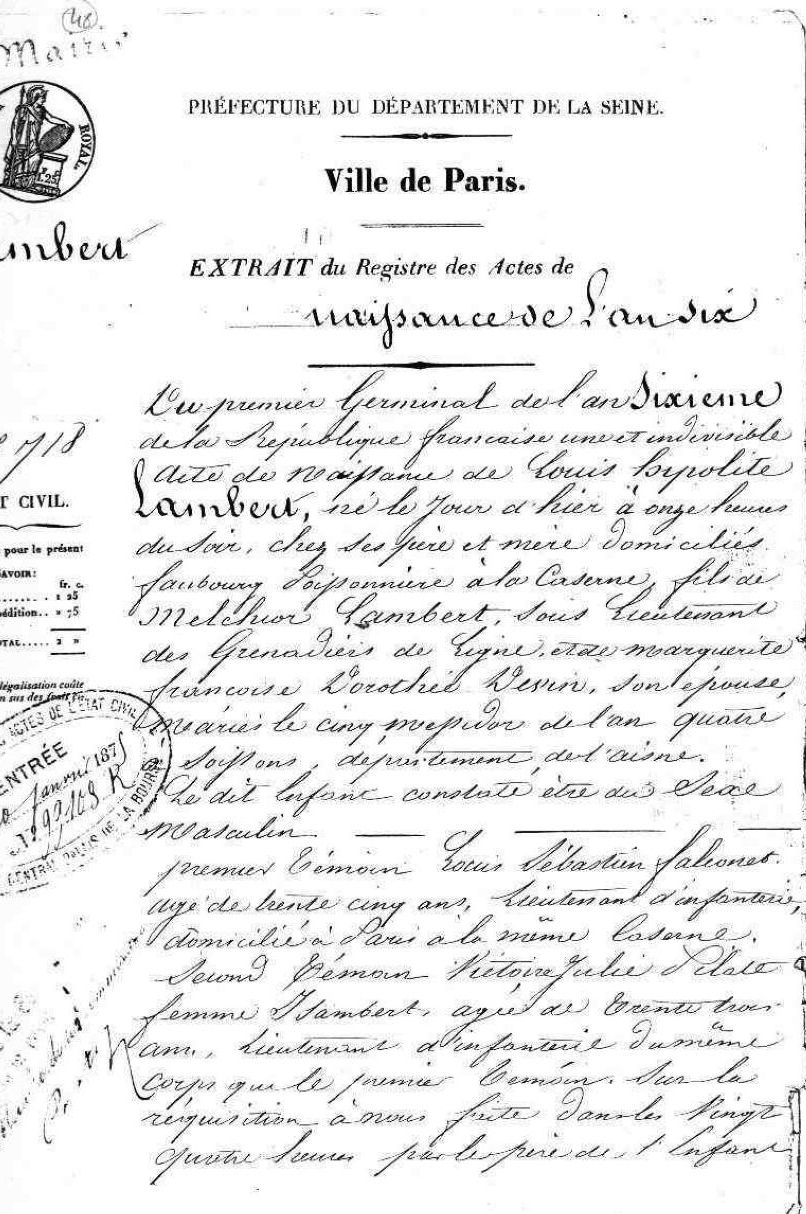 48
Mairie
ROYAL.
1 F. 25
PRÉFECTURE DU DÉPARTEMENT DE LA SEINE.
Ville de Paris.
mbert
EXTRAIT du Registre des Actes de
naissance de l'an six
Du premier Germinal de l'an Sixieme
de la République francaise une et indivisible
Acte de Naissance de Louis hypolite
Lambert, né le Jour d'hier à onze heures
du Soir, chez ses père et mère domiciliés
faubourg Poissonnière à la Caserne, fils de
Melchior Lambert, Sous Lieutenant
des Grenadiers de Ligne, et de marguerite
francoise Dorothée Devin, son épouse,
Mariés le cinq messidor de l'an quatre
Soissons, département de l'aisne.
Le dit Enfant constaté être du Sexe
Masculin
premier Témoin Louis Sébastien falconet
agé de trente cinq ans, Lieutenant d'infanterie,
domicilié à Paris à la même Caserne.
Second Témoin Victoire Julie
femme Isambert, agée de Trente trois
ans, Lieutenant d'infanterie du même
Corps que le premier Temoin. Sur la
réquisition à nous faite dans les Vingt
quatre heures par le père de l'Enfant
718
T CIVIL.
pour le présent
SAVOIR:
fr. c.
1 25
pédition.. » 75
TOTAL..... 2 »
légalisation coûte
en sus des
ACTES DE L'ÉTAT CIVIL
ENTRÉE
janvier 1875
N° 99103 R
CENTRAL PALAIS DE LA BOURSE